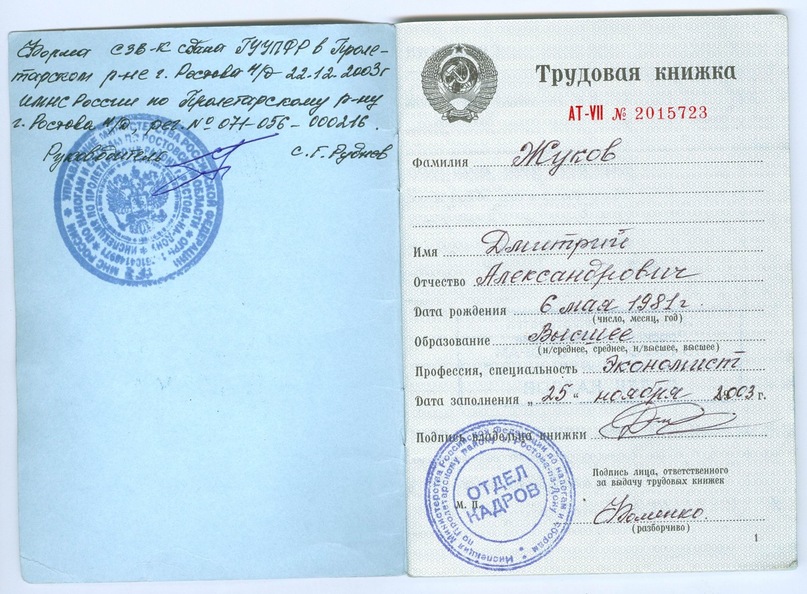 Форма СЗВ-К сдана ГУУПФР в Проле-
тарском р-не г. Ростова н/Д 22.12.2003г
ИМНС России по Пролетарскому р-ну
г. Ростова н/Д, рег. № 071-056-000216.
Руководитель С.Г. Руднев
Трудовая книжка
АТ-VII № 2015723
Фамилия Жуков
Имя Дмитрий
Отчество Александрович
Дата рождения 6 мая 1981г.
(число, месяц, год)
Образование Высшее
(н/среднее, среднее, н/высшее, высшее)
Профессия, специальность Экономист
Дата заполнения „25“ ноября 2003 г.
Подпись владельца книжки
Подпись лица, ответственного
за выдачу трудовых книжек
М. П.
Фоменко.
(разборчиво)
ОТДЕЛ
КАДРОВ
Министерства Российской Федерации по налогам и сборам
Инспекция по Пролетарскому району г. Ростова-на-Дону
1